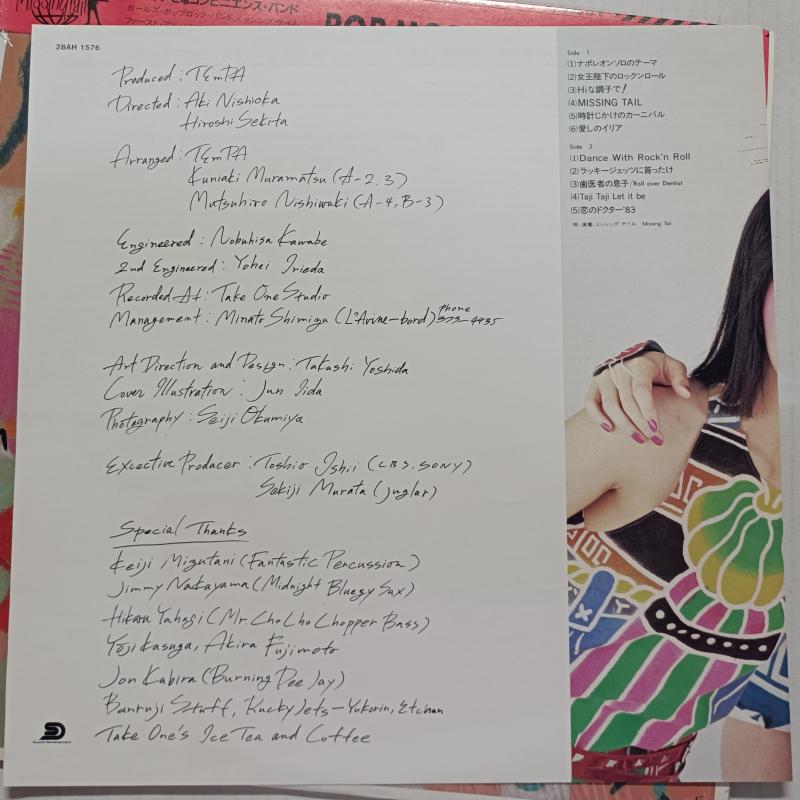 Missing Tail
コンビニエンス・バンド
ガールズ・ポップロック・バンド、ミッシング・テイル
28AH 1576
Produced : TEmPA
Directed : Aki Nishioka
Hiroshi Sekita
Arranged : TEmPA
Kuniaki Muramatsu (A-2.3)
Mutsuhiro Nishiwaki (A-4, B-3)
Engineered : Nobuhisa Kawabe
2nd Engineered : Yohei Irieda
Recorded At : Take One Studio
Management : Minato Shimizu (L'Avine-bord) Phone 372-4435
Art Direction and Design : Takashi Yoshida
Cover Illustration : Jun Iida
Photography : Seiji Okumiya
Excective Producer : Toshio Ishii (CBS. SONY)
Sekiji Murata (juglar)
Special Thanks
Keiji Mizutani (Fantastic Percussion)
Jimmy Nakayama (Midnight Bluegy Sax)
Hikaru Yahagi (Mr. Cho Cho Chopper Bass)
Yōji Kasuga, Akira Fujimoto
Jon Kabira (Burning Dee Jay)
Banruji Stuff, Rucky Jets-Yukorin, Etchan
Take One's Ice Tea and Coffee
SD
Sound Development
Side 1
(1)ナポレオンソロのテーマ
(2)女王陛下のロックンロール
(3)Hiな調子で!
(4)MISSING TAIL
(5)時計じかけのカーニバル
(6)愛しのイリア
Side 2
(1)Dance With Rock'n Roll
(2)ラッキージェッツに首ったけ
(3)歯医者の息子/Roll over Dentist
(4)Taji Taji Let it be
(5)恋のドクター'83
・唄・演奏:ミッシング テイル Missing Tail